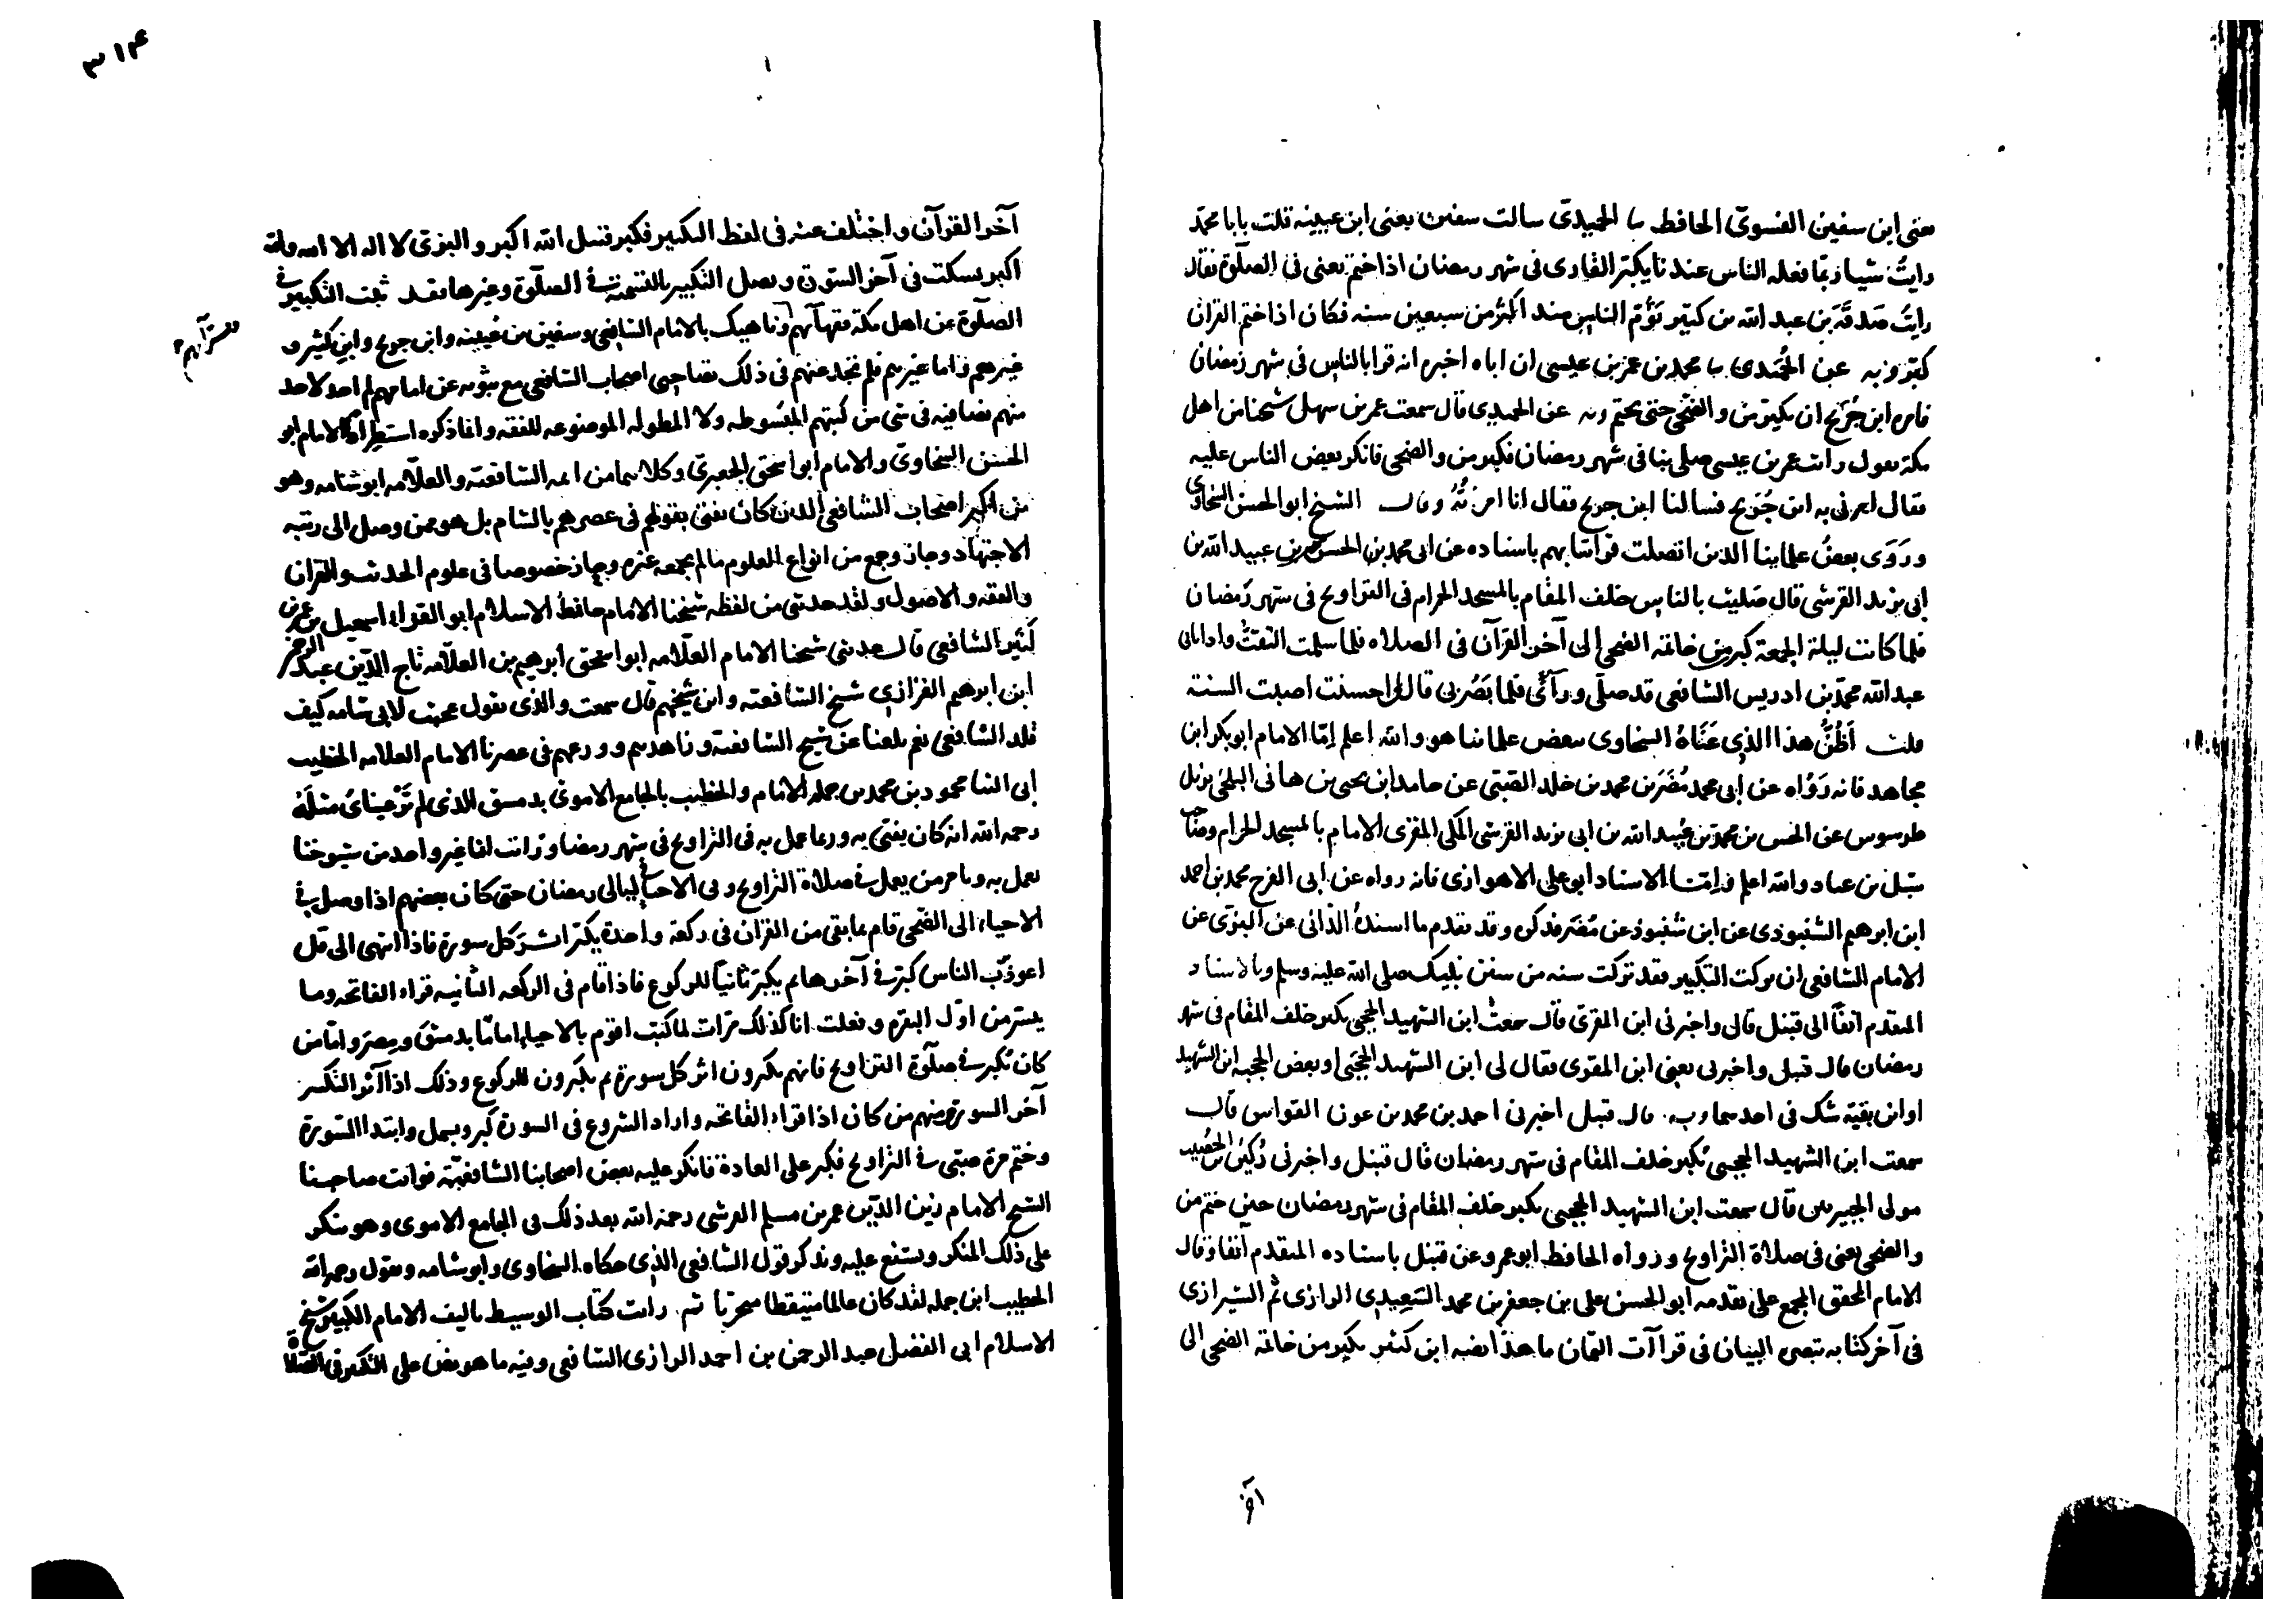 يعنى ابن سفين الفسوىّ الحافظ ىا الحميدىّ سالت سفين يعنى ابن عيينه قلت يابا محمد
رايتُ شيا ربّما فعله الناس عندنا يكبّر القارى فى شهر رمضان اذا ختم يعنى فى الصلوة فقال
رايت صَدقَة بن عبد الله بن كثير يؤمّ الناس منذ اكثر من سبعين سنه فكان اذا ختم القران
كبّر وبه عن الحُمَيدى ىا محمد بن عمر بن عيسى ان اباه اخبره انه قرا بالناس فى شهر رمضان
فامره ابن جُرَيج ان يكبر من والضحى حتى يختم وبه عن الحميدى قال سمعت عمر بن سهل شيخا من اهل
مكة يقول رايت عمر بن عيسى صلى بنا فى شهر رمضان فكبر من والضحى فانكر بعض الناس عليه
فقال امرنى به ابن جُرَيج فسالنا ابن جريج فقال انا امرتُهُ وقال الشيخ ابو الحسن السخاوى
ورَوَى بعضُ علمائنا الذين اتصلت قراتنا بهم باسناده عن ابى محمد بن الحسن بن محمد بن عبيد الله بن
ابى يزيد القرشى قال صَليت بالناس خلف المقام بالمسجد الحرام فى التراويح فى شهر رمضان
فلما كانت ليلة الجمعة كبرت من خاتمة الضحى الى آخر القرآن فى الصلاه فلما سلمت التفتُّ واذا بابى
عبد الله محمّد بن ادريس الشافعى قد صلّى ورآئى فلما بَصُر بى قال لى احسنت اصبت السنة
قلت أظُنُّ هذا الذى عَنَاهُ السخاوى ببعض علمائنا هو والله اعلم اِمّا الامام ابو بكر ابن
مجاهد فانه رَوَاه عن ابى محمد مُضَر بن محمد بن خلد الضبّى عن حامد ابن يحيى بن هانى البلخى نزيل
طرسوس عن الحسن بن محمد بن عبيد الله بن ابى يزيد القرشى المكى المقرى الامام بالمسجد الحرام وصاحب
شبل بن عباد والله اعلم وإمّا الاستاد ابو على الاهوازى فانه رواه عن ابى الفرج محمد بن احمد
ابن ابرهيم الشنبوذى عن ابن شنبوذ عن مُضَر فذكره وقد تقدم ما اسندهُ الدّانى عن البزّى عن
الامام الشافعى ان تركت التكبير فقد تركت سنه من سنن نبيك صلى الله عليه وسلم وبالاسناد
المتقدم انفاً الى قنبل قال واخبرنى ابن المقرى قال سمعتُ ابن الشهيد الحجبى يكبر خلف المقام فى شهر
رمضان قال قنبل واخبرنى يعنى ابن المقرى فقال لى ابن الشهيد الحجَبى او بعض الحجبه ابن الشهيد
او ابن بقية شك فى احدهما وبه قال قنبل اخبرنى احمد بن محمد بن عون القواس قال
سمعت ابن الشهيد الحجبى يُكبر خلف المقام فى شهر رمضان قال قنبل واخبرنى رُكَين بن الحصيب
مولى الجبيريين قال سمعت ابن الشهيد الحجبى يكبر خلف المقام فى شهر رمضان حين ختم من
والضحى يعنى فى صلاة التراويح ورواه الحافظ ابو عمرو عن قنبل باسناده المتقدم آنفا وقال
الامام المحقق المجمع على تقدمه ابو الحسن على بن جعفر بن محمد السّعِيدى الرازى ثم الشيرازى
فى آخر كتابه تبصرة البيان فى قراآت الثمان ما هذا نصه ابن كثير يكبر من خاتمة الضحى الى
آخر
٣١٤
آخر القرآن واختلف عنه فى لفظ التكبير فكبر قنبل الله اكبر والبزى لا اله الا الله والله
اكبر يسكت فى آخر السورة ويصل التكبير بالتسمية فى الصلوة وغيرها فقد ثبت التكبير فى
الصلوة عن اهل مكة فقهآئهم وناهيك بالامام الشافعى وسفين بن عُيينه وابن جريج وابن كثير و
غيرهم واما غيرهم فلم نجد عنهم فى ذلك نصا حتى اصحاب الشافعى مع ثبوته عن امامهم لم اجد لاحد
منهم نصا فيه فى شى من كتبهم المبسُوطه ولا المطوله الموضوعه للفقه وانما ذكره استطرادا الامام ابو
الحسن السخاوى والامام ابو اسحق الجعبرىّ وكلاهما من ايمه الشافعيه والعلاّمه ابو شامه وهو
من اكبر اصحاب الشافعى الذين كان يفتى بقولهم فى عصرهم بالشام بل هو ممن وصل الى رتبه
الاجتهاد وحاز وجمع من انواع العلوم ما لم يجمعه غيره وحاز خصوصا فى علوم الحديث والقران
والفقه والاصول ولقد حدثنى من لفظه شيخنا الامام حافظ الاسلام ابو الفداء اسمعيل بن عمر بن
كثير الشافعى قال حدثنى شيخنا الامام العلاّمه ابو اسحق ابرهيم بن العلاّمه تاج الدّين عبد الرحمن
ابن ابرهيم الفزارى شيخ الشافعيه وابن شيخهم قال سمعت والدى يقول عجبت لابى شامه كيف
قلد الشافعى نعم بلغنا عن شيخ الشافعيه وزاهدهم وورعهم فى عصرنا الامام العلامه الخطيب
ابى الثنا محمود بن محمد بن جمله الامام والخطيب بالجامع الاموى بدمشق الذى لم تر عيناى مثلَهُ
رحمه الله انه كان يفتى به وربما عمل به فى التراويح فى شهر رمضان ورايت انا غير واحد من شيوخنا
يعمل به ويامر من يعمل فى صلاة التراويح وفى الاحياء ليالى رمضان حتى كان بعضهم اذا وصل فى
الاحياء الى الضحى قام بما بقى من القران فى ركعة واحدة يكبّر اثر كل سورة فاذا انتهى الى قل
اعوذ برب الناس كبّر فى آخرها ثم يكبر ثانياً للركوع فاذا قام فى الركعه الثانيه قراء الفاتحه وما
يسّر من اوّل البقره وفعلت انا كذلك مرّات لما كنت اقوم بالاحياء اماما بدمشق ومصر وامّا من
كان يُكبر فى صلوة التراويح فانهم يكبرون اثر كل سورة ثم يكبرون للركوع وذلك اذا آثر التكبير
آخر السورة ومنهم من كان اذا قراء الفاتحه واراد الشروع فى السورة كبّر وبسمل وابتدا السّورة
وختم مرة صبّى فى التراويح فكبر على العادة فانكر عليه بعض اصحابنا الشافعيّه فرايت صاحبنا
الشيخ الامام زين الدّين عمر بن مسلم القرشى رحمه الله بعد ذلك فى الجامع الاموى وهو ينكر
على ذلك المنكر ويشنع عليه ويذكر قول الشافعى الذى حكاه السخاوى وابو شامه ويقول رحم الله
الخطيب ابن جمله لقد كان عالما متيقظا متحريا ثم رايت كتاب الوسيط تاليف الامام الكبير شيخ
الاسلام ابى الفضل عبد الرحمن بن احمد الرازى الشافعى وفيه ما هو نص على التكبير فى الصلاة